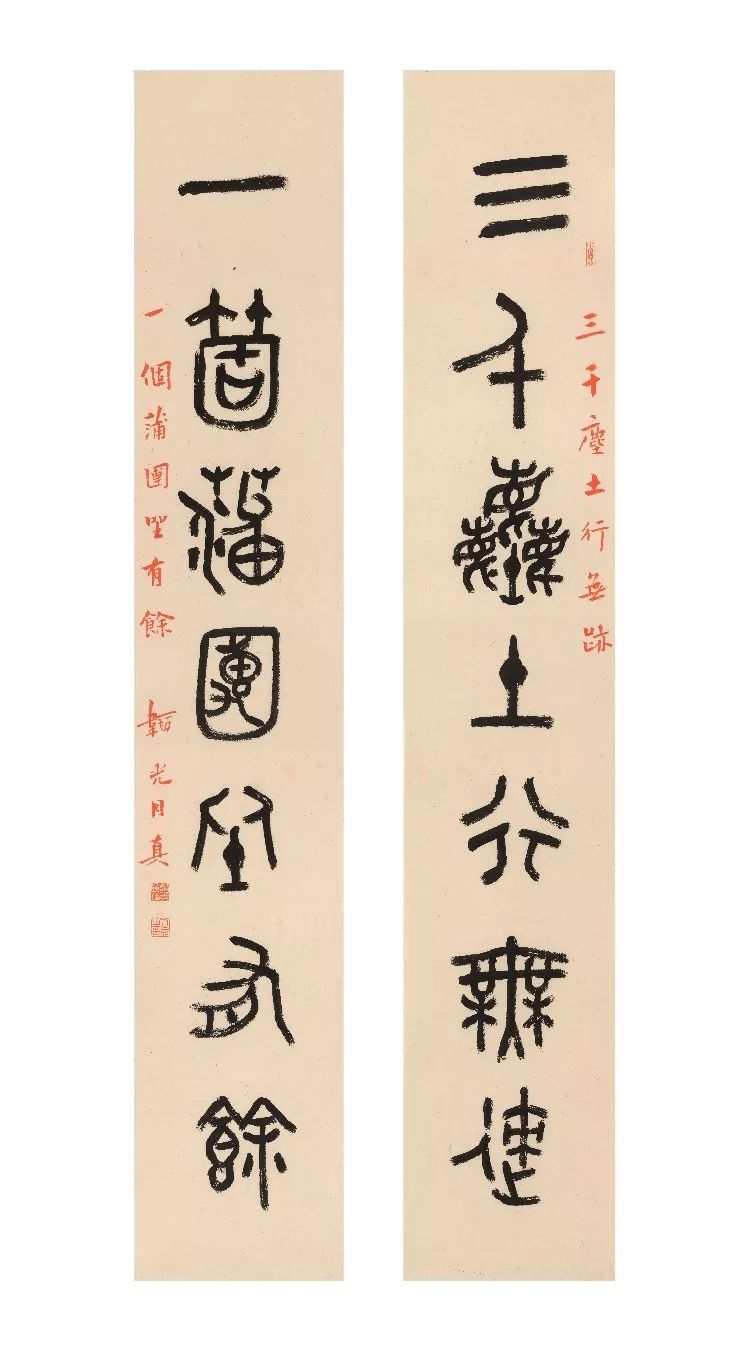 三千塵土行無迹
三千塵土行無跡
一箇蒲團坐有餘
一個蒲團坐有餘 韜光月真